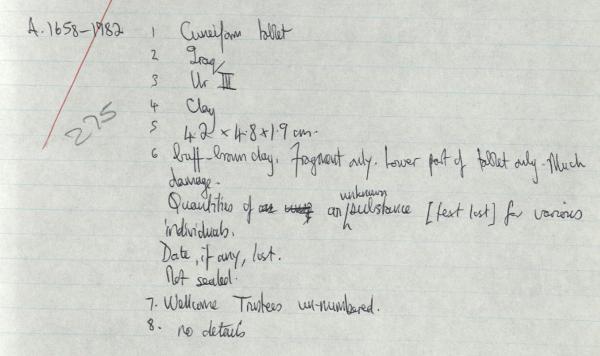 A.1658-1982 1 Cuneiform tablet
2 Iraq
3 Ur III
4 Clay
275
5 4.2 x 4.8 x 1.9 cm.
6 buff-brown clay. Fragment only. Lower part of tablet only. Much
damage.
Quantities of an unknown substance [text lost] for various
individuals.
Date, if any, lost.
Not sealed.
7. Wellcome Trustees un-numbered.
8. no details